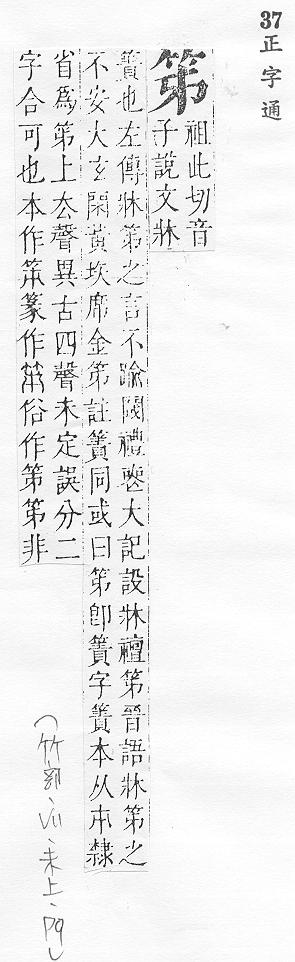 37
正字通
笫
祖此切音
子說文牀
簀也左傳牀笫之言不踰閾禮喪大記設牀襢笫晉語牀笫之
不安大玄閑黃垁席金笫註簀同或曰笫卽簀字簀本从朿隸
省爲笫上厺聲異古四聲未定誤分二
字合可也本作𥬰篆作𥬰俗作第第非
(竹部、